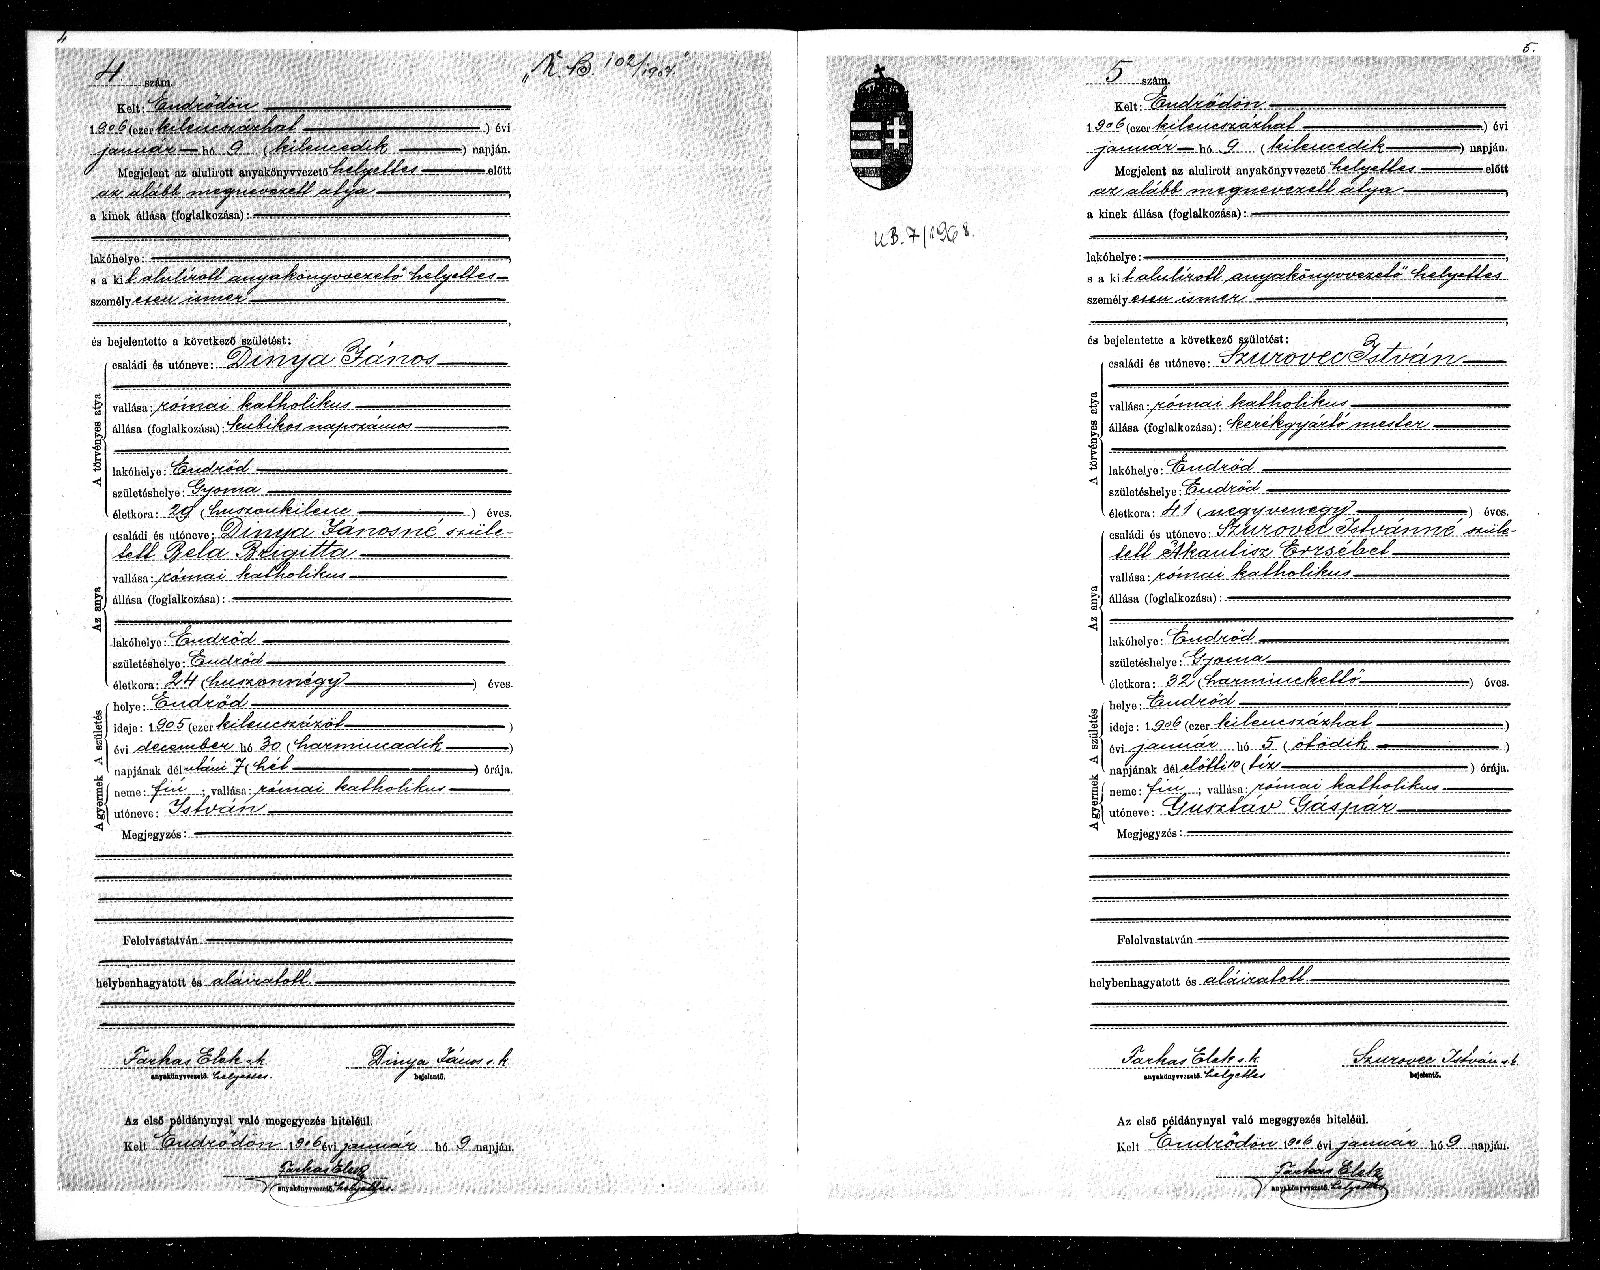 4
4 szám.
„K. B. 102/1907.”
Kelt: Endrődön
1906 (ezer kilencszázhat ) évi
január hó 9 ( kilencedik ) napján.
Megjelent az alulirott anyakönyvvezető helyettes előtt
az alább megnevezett atya ,
a kinek állása (foglalkozása):
,
lakóhelye: ,
s a kit alulírott anyakönyvvezető helyettes
személyesen ismer
,
és bejelentette a következő születést:
A törvényes atya
családi és utóneve: Dinya János
vallása: római katholikus
állása (foglalkozása): kubikos napszámos
lakóhelye: Endrőd
születéshelye: Gyoma
életkora: 29 (huszonkilenc ) éves.
Az anya
családi és utóneve: Dinya Jánosné szüle-
tett Bela Brigitta
vallása: római katholikus
állása (foglalkozása):
lakóhelye: Endrőd
születéshelye: Endrőd
életkora: 24 (huszonnégy ) éves.
A születés
helye: Endrőd
ideje: 1905 (ezer kilencszázöt )
évi december hó 30 (harmincadik )
napjának délutáni 7 (hét ) órája.
A gyermek
neme: fiú ; vallása: római katholikus
utóneve: István
Megjegyzés:
Felolvastatván
helybenhagyatott és aláiratott.
Farkas Elek s.k. Dinya János s.k.
anyakönyvvezető. helyettes. bejelentő.
Az első példánynyal való megegyezés hiteléül.
Kelt Endrődön 1906 évi január hó 9 napján.
Farkas Elek
anyakönyvvezető. helyettes.
5.
5 szám.
K.B. 7/1968.
Kelt: Endrődön
1906 (ezer kilencszázhat ) évi
január hó 9 ( kilencedik ) napján.
Megjelent az alulirott anyakönyvvezető helyettes előtt
az alább megnevezett atya ,
a kinek állása (foglalkozása):
,
lakóhelye: ,
s a kit alulírott anyakönyvvezető helyettes
személyesen ismer
,
és bejelentette a következő születést:
A törvényes atya
családi és utóneve: Szurovec István
vallása: római katholikus
állása (foglalkozása): kerékgyártó mester
lakóhelye: Endrőd
születéshelye: Endrőd
életkora: 41 (negyvenegy ) éves.
Az anya
családi és utóneve: Szurovec Istvánné szüle-
tett Erzsébet
vallása: római katholikus
állása (foglalkozása):
lakóhelye: Endrőd
születéshelye: Gyoma
életkora: 32 (harminckettő ) éves.
A születés
helye: Endrőd
ideje: 1906 (ezer kilencszázhat )
évi január hó 5 (ötödik )
napjának délelőtti 10 (tíz ) órája.
A gyermek
neme: fiú ; vallása: római katholikus
utóneve: Gusztáv Gáspár
Megjegyzés:
Felolvastatván
helybenhagyatott és aláiratott.
Farkas Elek s.k. Szurovec István s.k.
anyakönyvvezető. helyettes bejelentő.
Az első példánynyal való megegyezés hiteléül.
Kelt Endrődön 1906 évi január hó 9 napján.
Farkas Elek
anyakönyvvezető. helyettes